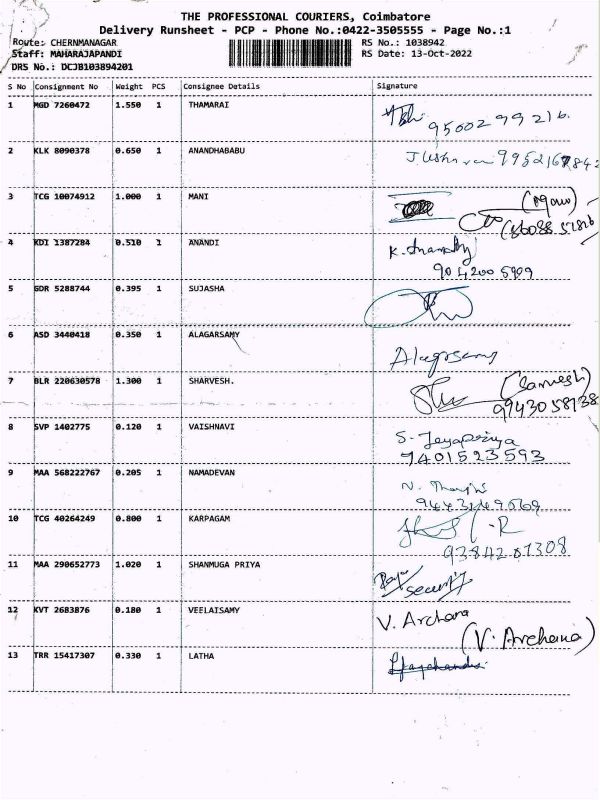 THE PROFESSIONAL COURIERS, Coimbatore
Delivery Runsheet - PCP - Phone No.:0422-3505555 - Page No.:1
Route: CHERNMANAGAR RS No.: 1038942
Staff: MAHARAJAPANDI RS Date: 13-Oct-2022
DRS No.: DCJB103894201
S No Consignment No Weight PCS Consignee Details Signature
1 MGD 7260472 1.550 1 THAMARAI
95002 99216.
2 KLK 8090378 0.650 1 ANANDHABABU
3 TCG 10074912 1.000 1 MANI
4 KDI 1387284 0.510 1 ANANDI
904200 5909
5 GDR 5288744 0.395 1 SUJASHA
6 ASD 3440418 0.350 1 ALAGARSAMY
Alagarsamy
7 BLR 220630578 1.300 1 SHARVESH.
9943058138
8 SVP 1402775 0.120 1 VAISHNAVI
S. Jeyapriya
7401523593
9 MAA 568222767 0.205 1 NAMADEVAN
10 TCG 40264249 0.800 1 KARPAGAM
11 MAA 290652773 1.020 1 SHANMUGA PRIYA
security
12 KVT 2683876 0.180 1 VEELAISAMY
V. Archana
(V. Archana)
13 TRR 15417307 0.330 1 LATHA